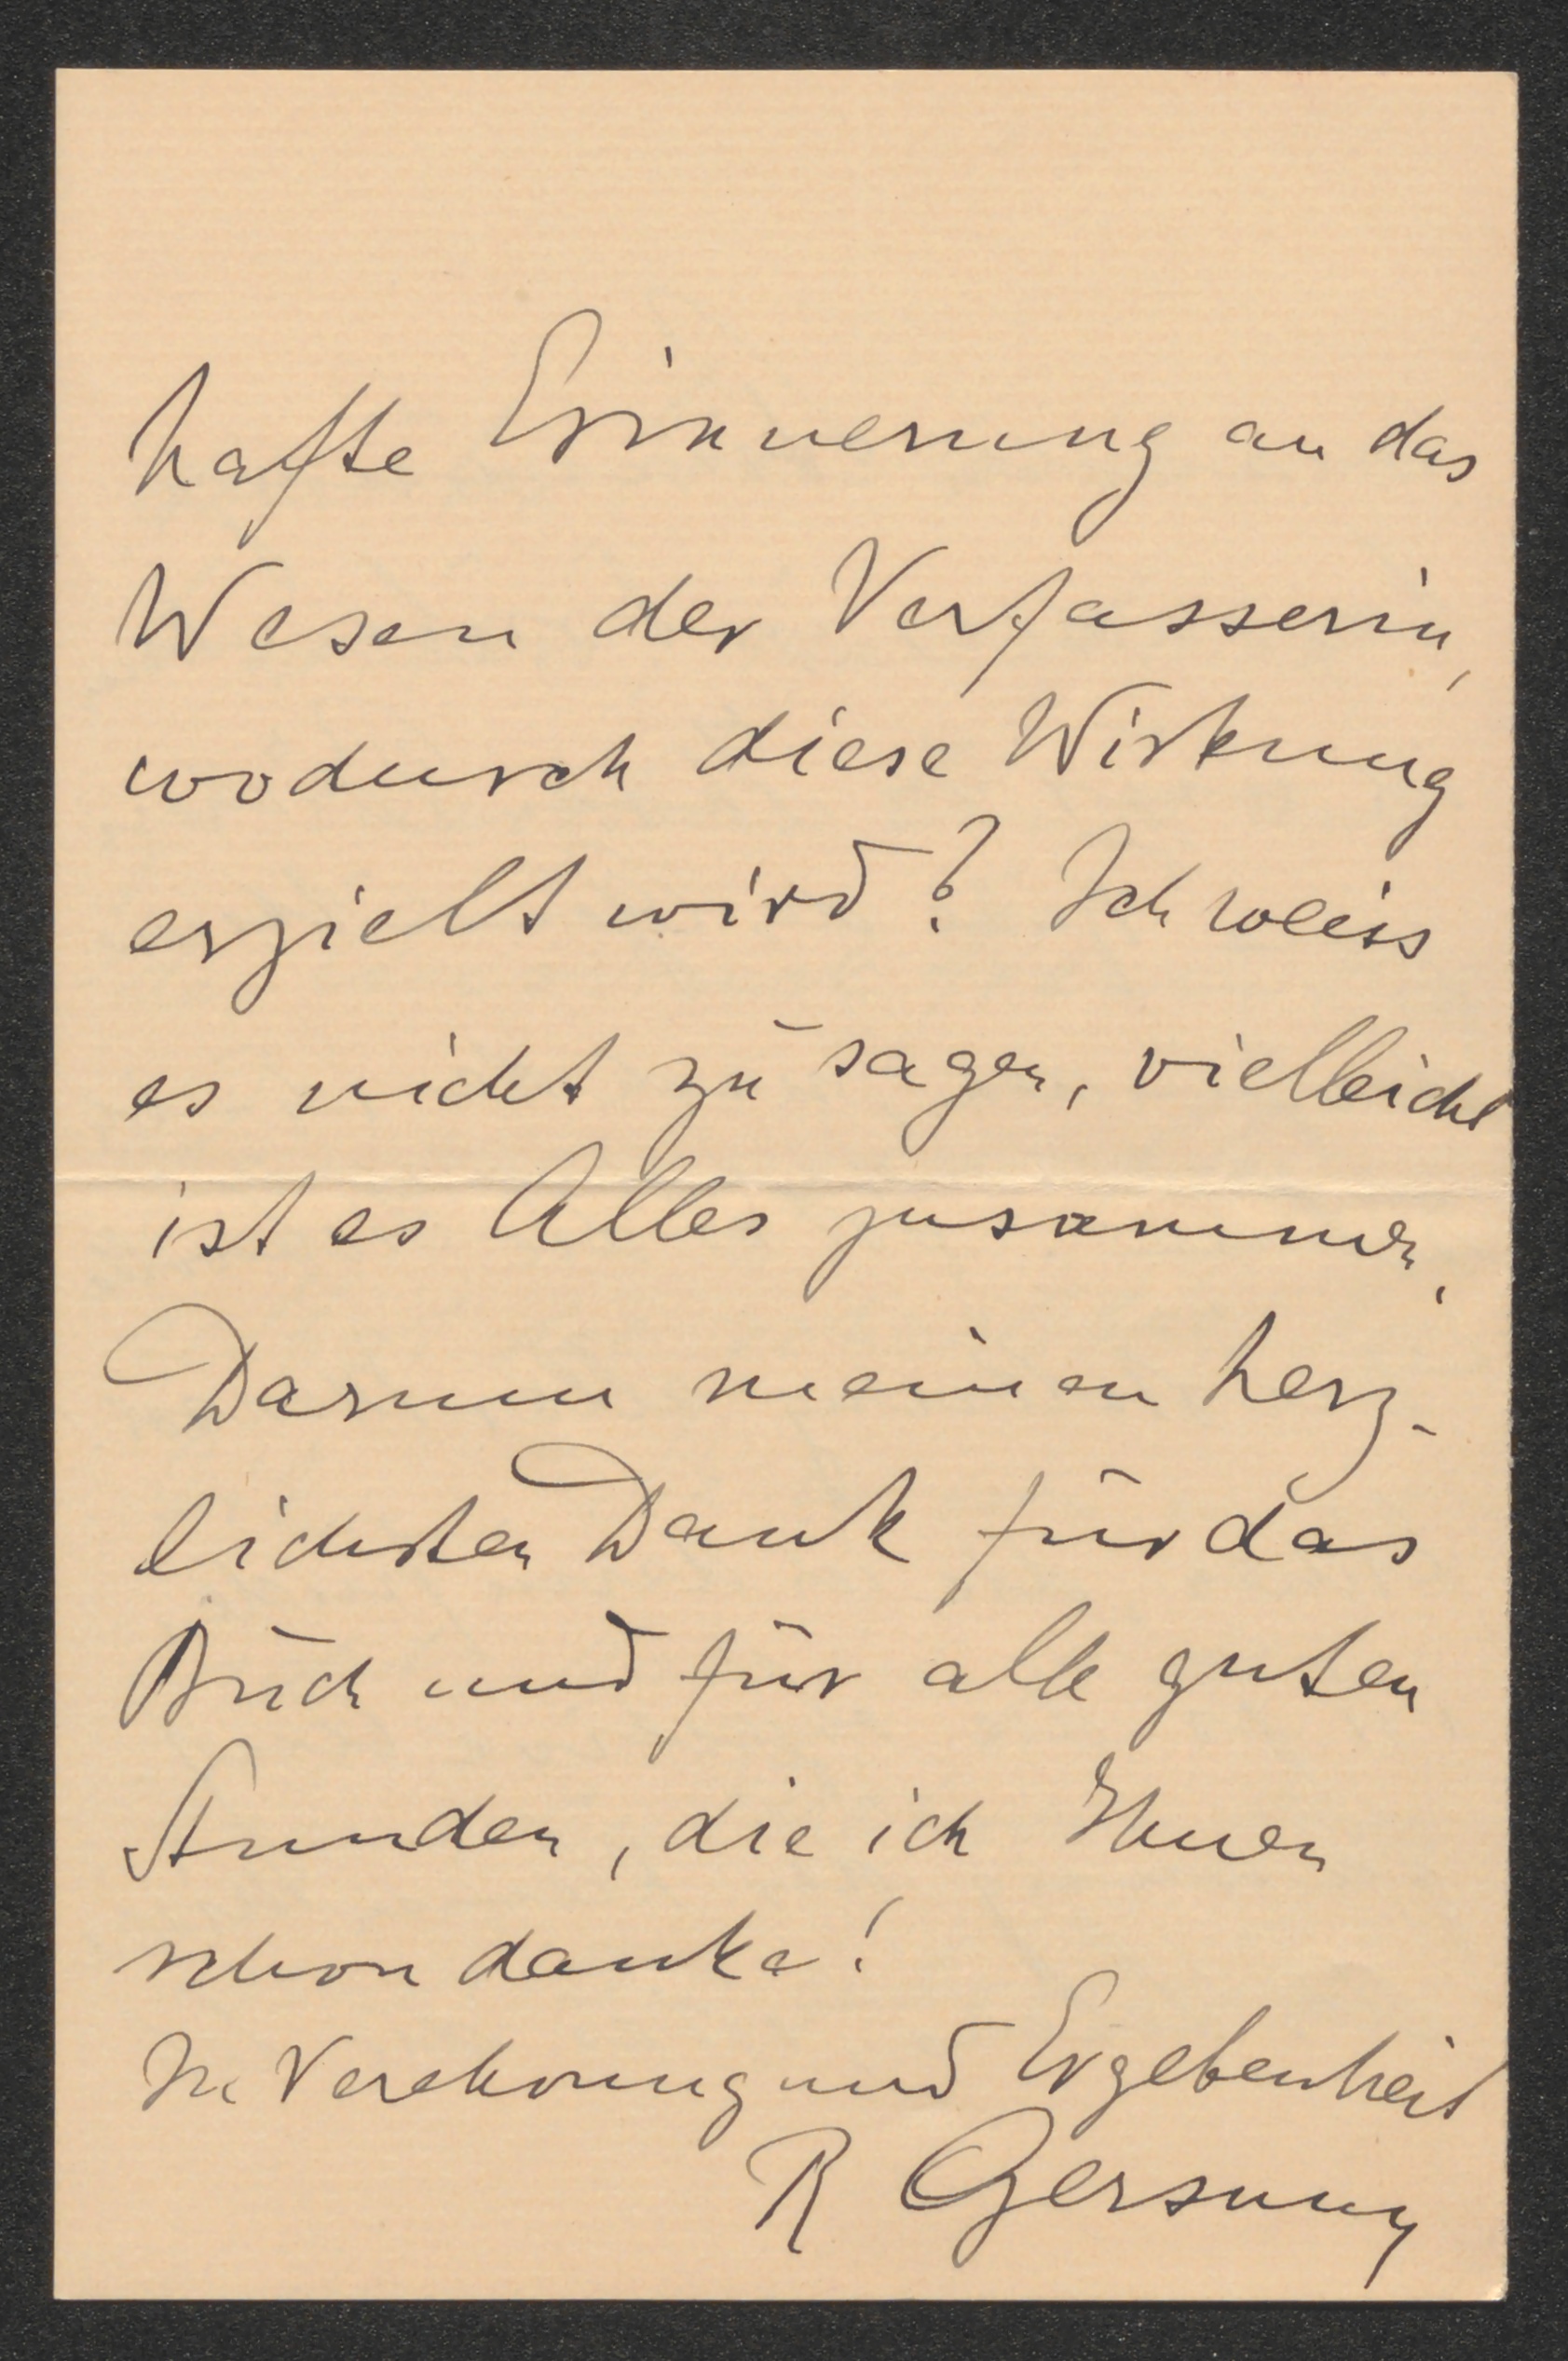 hafte Erinnerung an das
Wesen der Verfasserin,
wodurch diese Wirkung
erzielt wird? Ich weiss
es nicht zu sagen, vielleicht
ist es Alles zusammen,
Darum meinen herz-
lichsten Dank für das
Buch und für alle guten
Stunden, die ich Ihnen
schon danke!
In Verehrung und Ergebenheit
R Gersuny